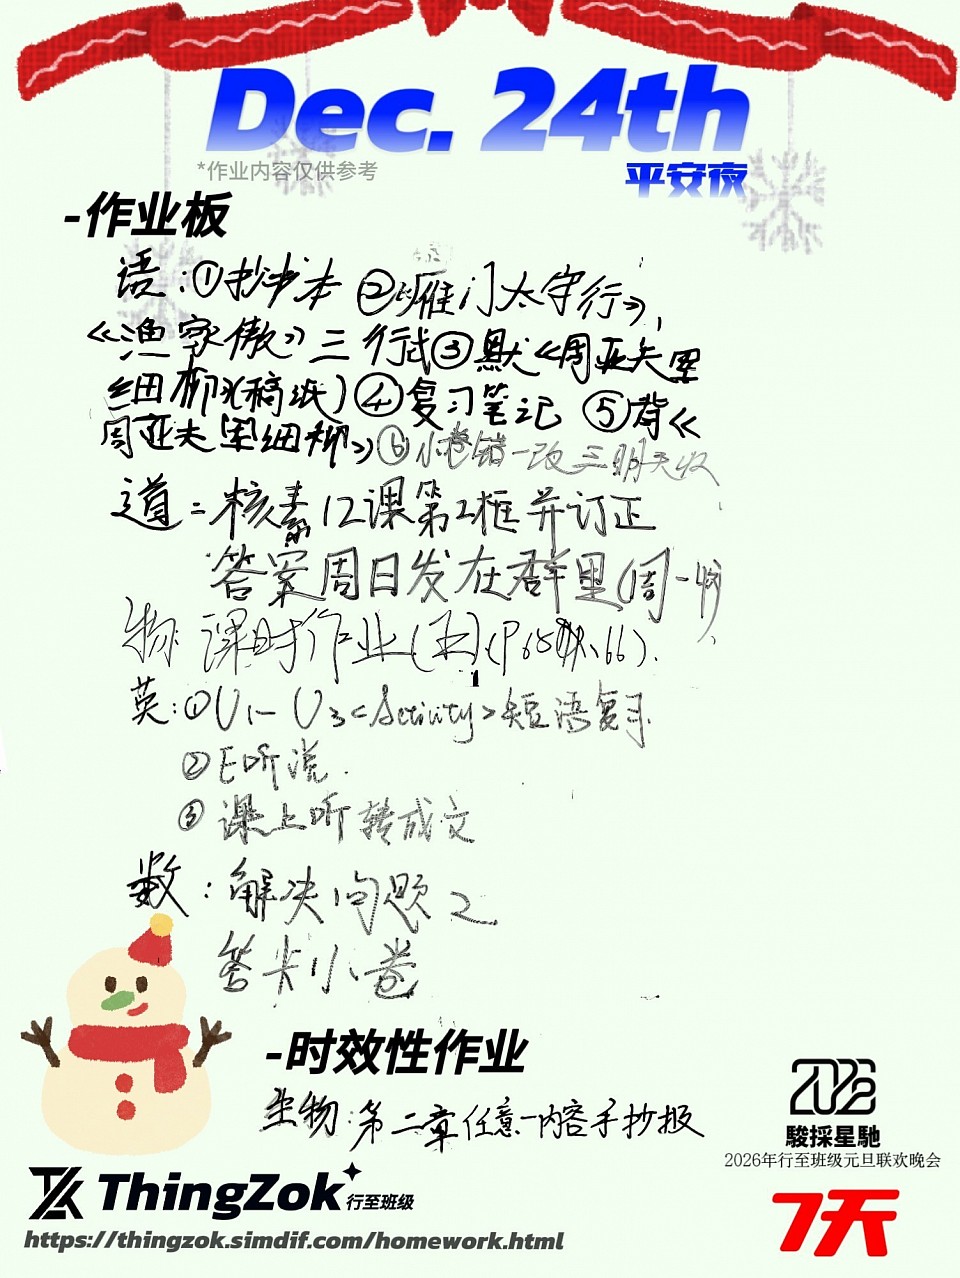 Dec. 24th
*作业内容仅供参考
平安夜
-作业板
语:①抄书本 ②《雁门太守行》,
《渔家傲》三行式③默《周亚夫军
细柳》(稿纸)④复习笔记 ⑤背《
周亚夫军细柳》⑥小卷错一改三明天收
道:核素12课第2框并订正
答案周日发在群里(周一收)
物:课时作业(五)(P65、66).
英:①U1-U3<Activity>短语复习
②E听说.
③课上听转成文
数:解决问题2
答卡小卷
-时效性作业
生物:第二章任意一内容手抄报
2026
駿採星馳
2026年行至班级元旦联欢晚会
7天
ThingZok
行至班级
https://thingzok.simdif.com/homework.html